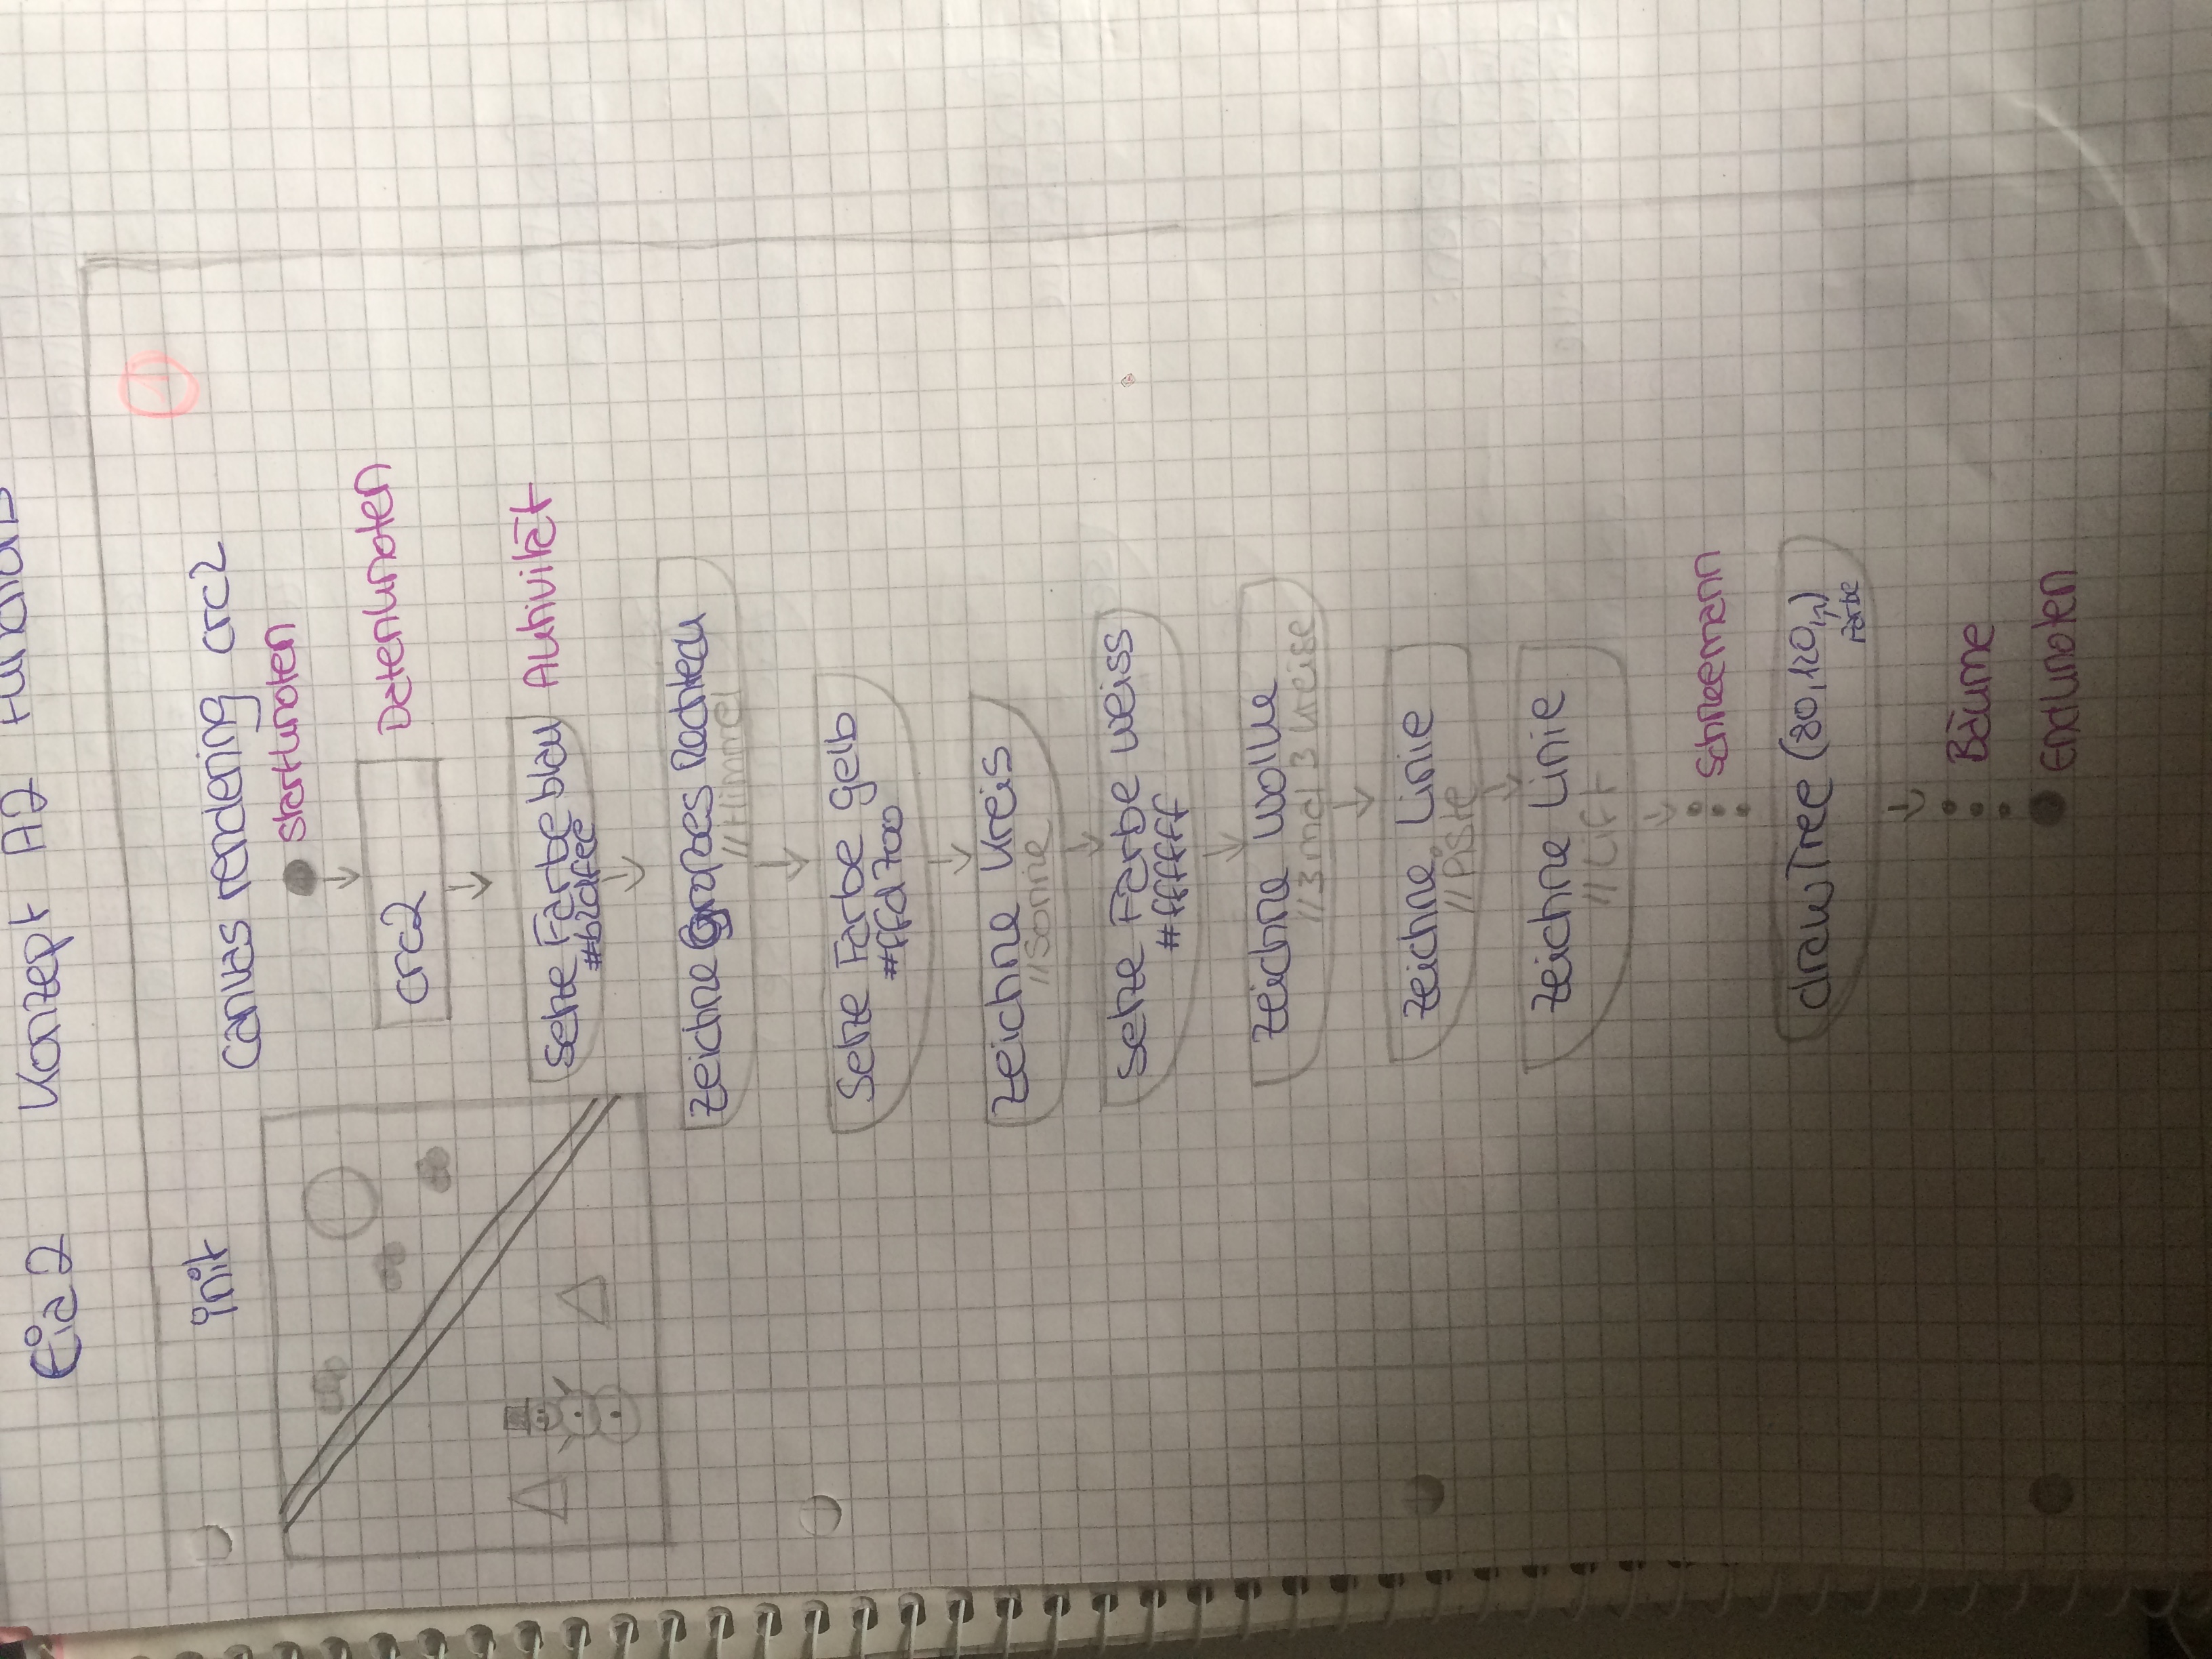 Eia2 Konzept A2 Functions
1
init
canvas rendering crc2
startknoten
crc2
Datenknoten
setze Farbe blau
#b2dfee
Aktivität
zeichne Großes Rechteck
//Himmel
Setze Farbe gelb
#ffd700
zeichne Kreis
//Sonne
setze Farbe weiss
#ffffff
zeichne Wolke
//3 mal 3 Kreise
zeichne Linie
//Piste
zeichne Linie
//Lift
Schneemann
drawTree (80,120,"")
Farbe
Bäume
Endknoten